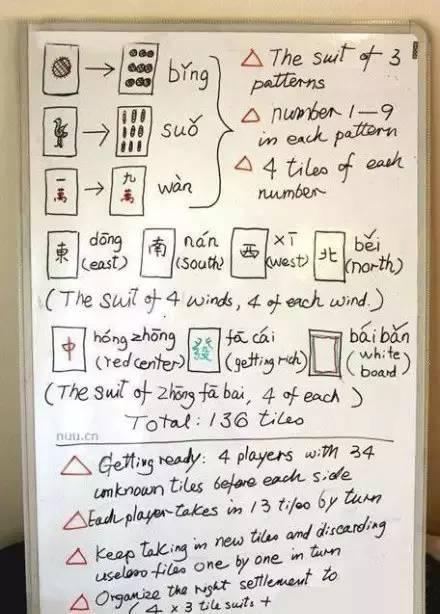 → bǐng
→ suǒ
一萬 → 九萬 wàn
△ The suit of 3
patterns
△ number 1—9
in each pattern
△ 4 tiles of each
number
東 dōng (east) 南 nán (south) 西 xī (west) 北 běi (north)
(The suit of 4 winds, 4 of each wind.)
中 hóng zhōng (red center) 發 fā cái (getting rich) bái bǎn (white board)
(The suit of zhōng fā bai, 4 of each)
Total: 136 tiles
nuu.cn
△ Getting ready: 4 players with 34
unknown tiles before each side
△ Each player takes in 13 tiles by turn
△ Keep taking in new tiles and discarding
useless tiles one by one in turn
△ Organize the right settlement to
(4 x 3 tile suits +